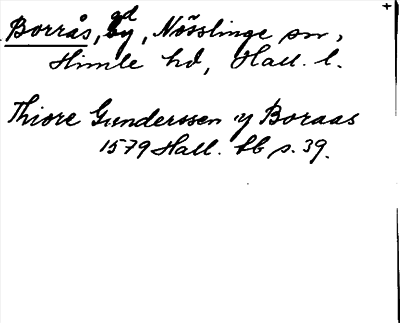 Borrås, gd by, Nösslinge sn,
Himle hd, Hall. l.
Thiore Gunderssen y Boraas
1579 Hall. tb s. 39.